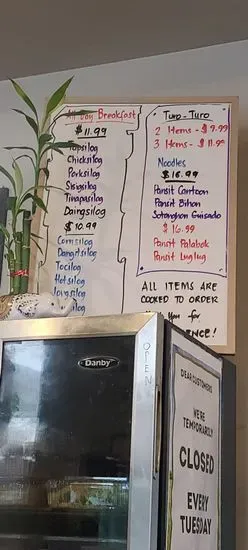 All Day Breakfast
$11.99
Topsilog
Chicksilog
Porksilog
Sisigsilog
Tinapasilog
Daingsilog
$10.99
Cornsilog
Dangitsilog
Tocilog
Hotsilog
Longsilog
silog
Turo-Turo
2 Items - $9.99
3 Items - $11.99
Noodles
$16.99
Pansit Canton
Pansit Bihon
Sotanghon Guisado
$16.99
Pansit Palabok
Pansit Luglug
ALL ITEMS ARE
COOKED TO ORDER
you for
ENCE!
Danby
OPEN
DEAR CUSTOMERS
WE'RE
TEMPORARILY
CLOSED
EVERY
TUESDAY